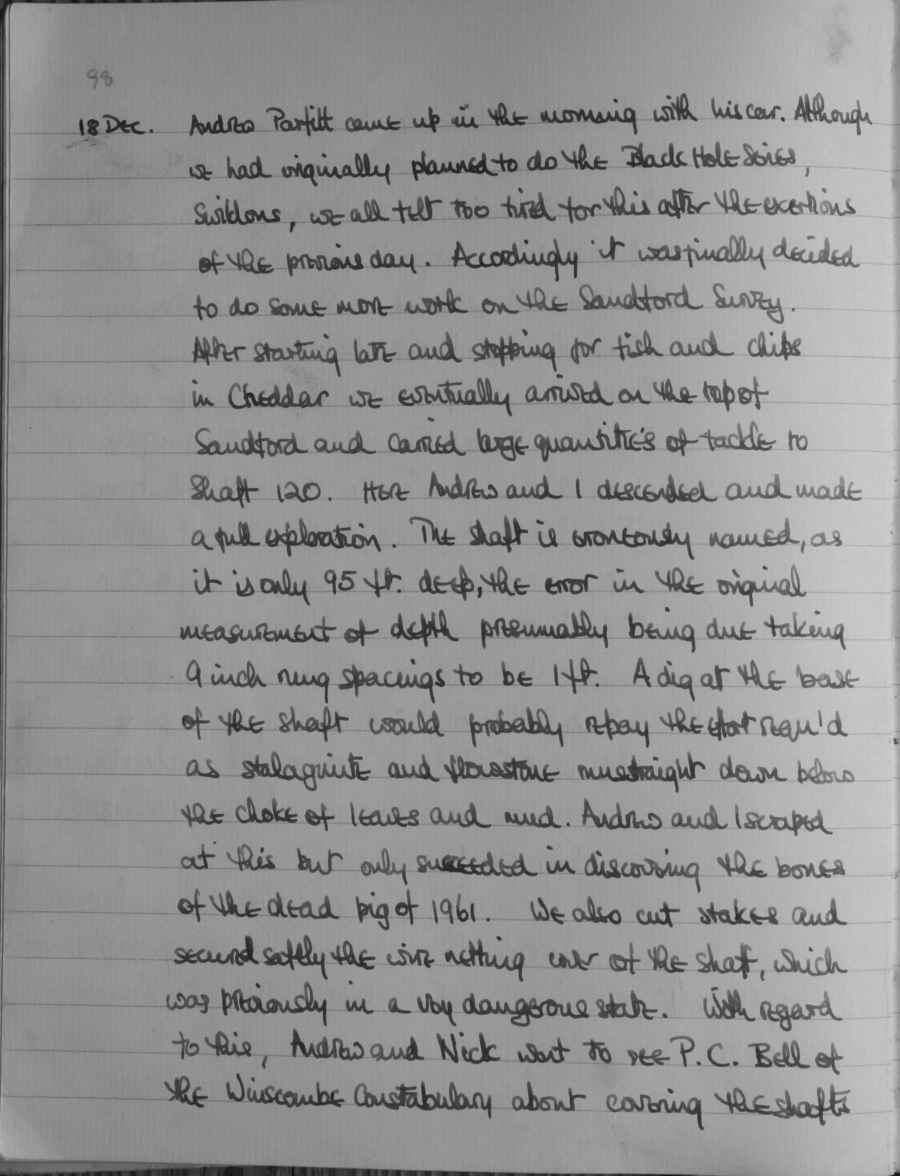 98
18 DEC. Andrew Parfitt came up in the morning with his car. Although
we had originally planned to do the Black Hole Series,
Swildons, we all felt too tired for this after the exertions
of the previous day. Accordingly it was finally decided
to do some more work on the Sandford Survey.
After starting late and stopping for fish and chips
in Cheddar we eventually arrived on the top of
Sandford and carried large quantities of tackle to
Shaft 120. Here Andrew and I descended and made
a full exploration. The shaft is erroneously named, as
it is only 95 ft. deep, the error in the original
measurement of depth presumably being due taking
9 inch rung spacings to be 1 ft. A dig at the base
of the shaft would probably repay the effort requ'd
as stalagmite and flowstone runs straight down below
the choke of leaves and mud. Andrew and I scraped
at this but only succeeded in discovering the bones
of the dead pig of 1961. We also cut stakes and
secured safely the wire netting cover of the shaft, which
was previously in a very dangerous state. With regard
to this, Andrew and Nick went to see P.C. Bell of
the Winscombe Constabulary about covering the shafts